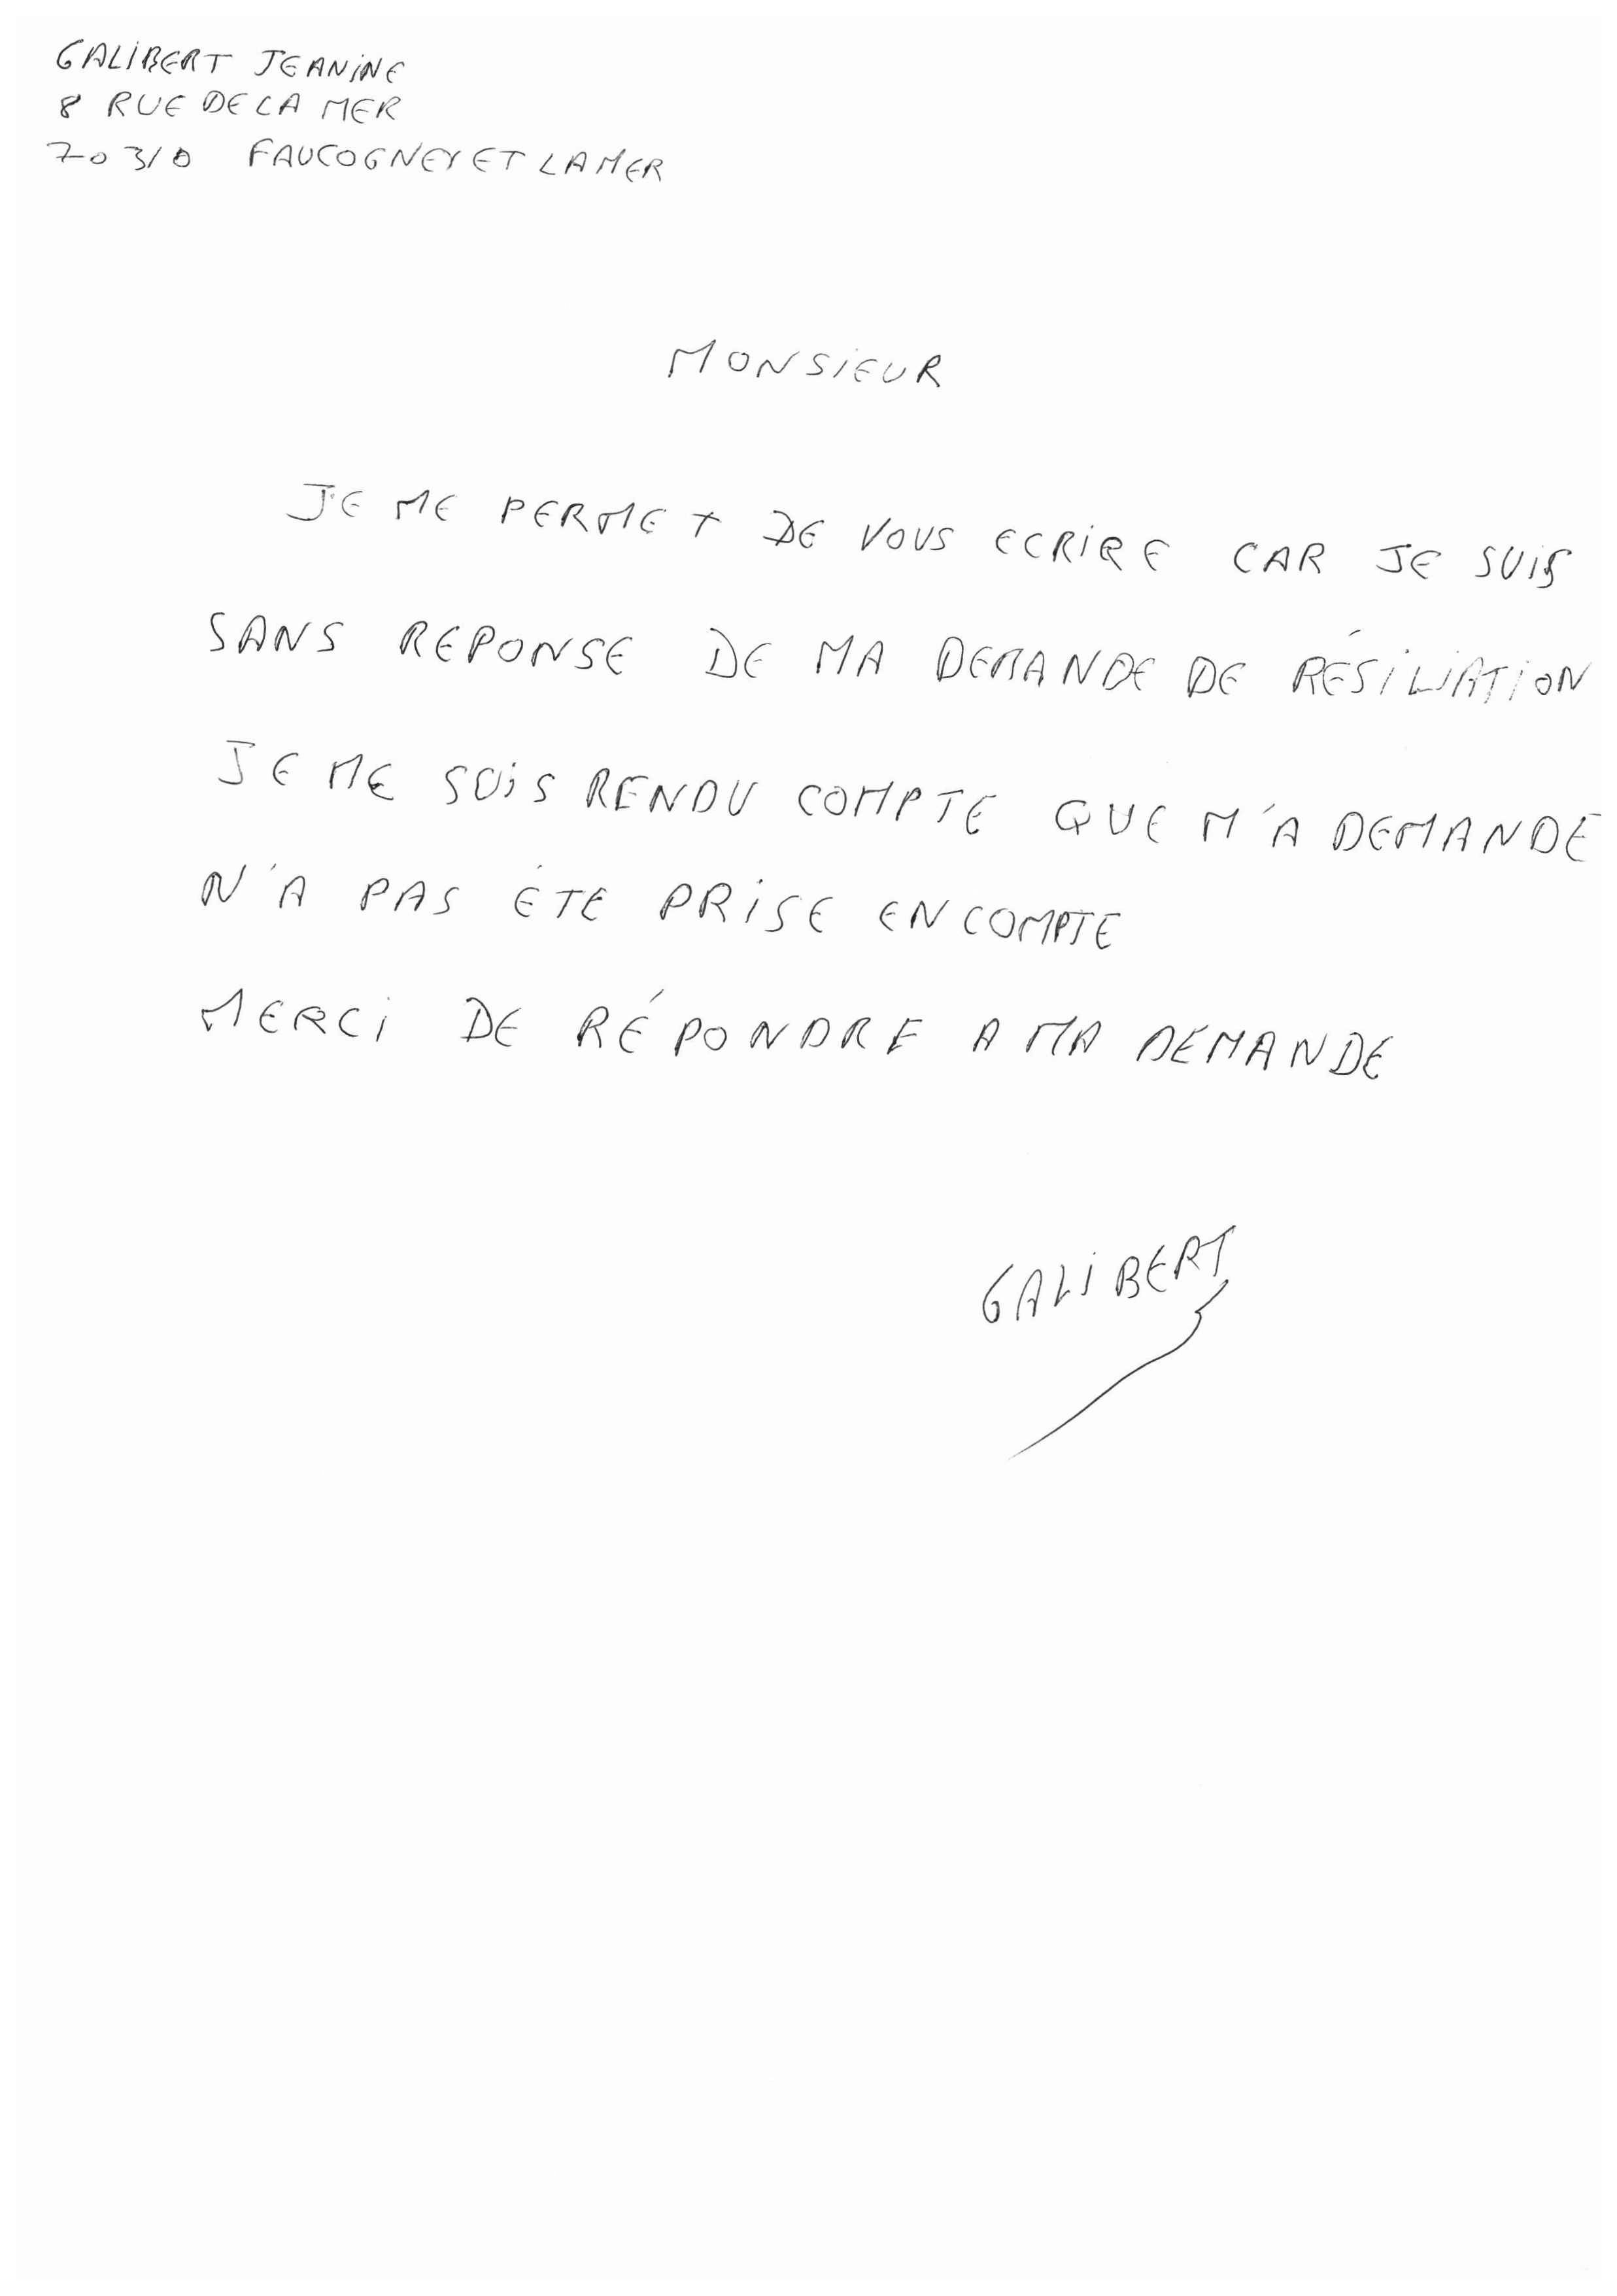 GALIBERT JEANINE
8 RUE DE LA MER
70310 FAUCOGNEY ET LA MER
MONSIEUR
JE ME PERMET DE VOUS ECRIRE CAR JE SUIS
SANS REPONSE DE MA DEMANDE DE RÉSILIATION
JE ME SUIS RENDU COMPTE QUE M'A DEMANDE
N'A PAS ÉTE PRISE EN COMPTE
MERCI DE RÉPONDRE A MA DEMANDE
GALIBERT